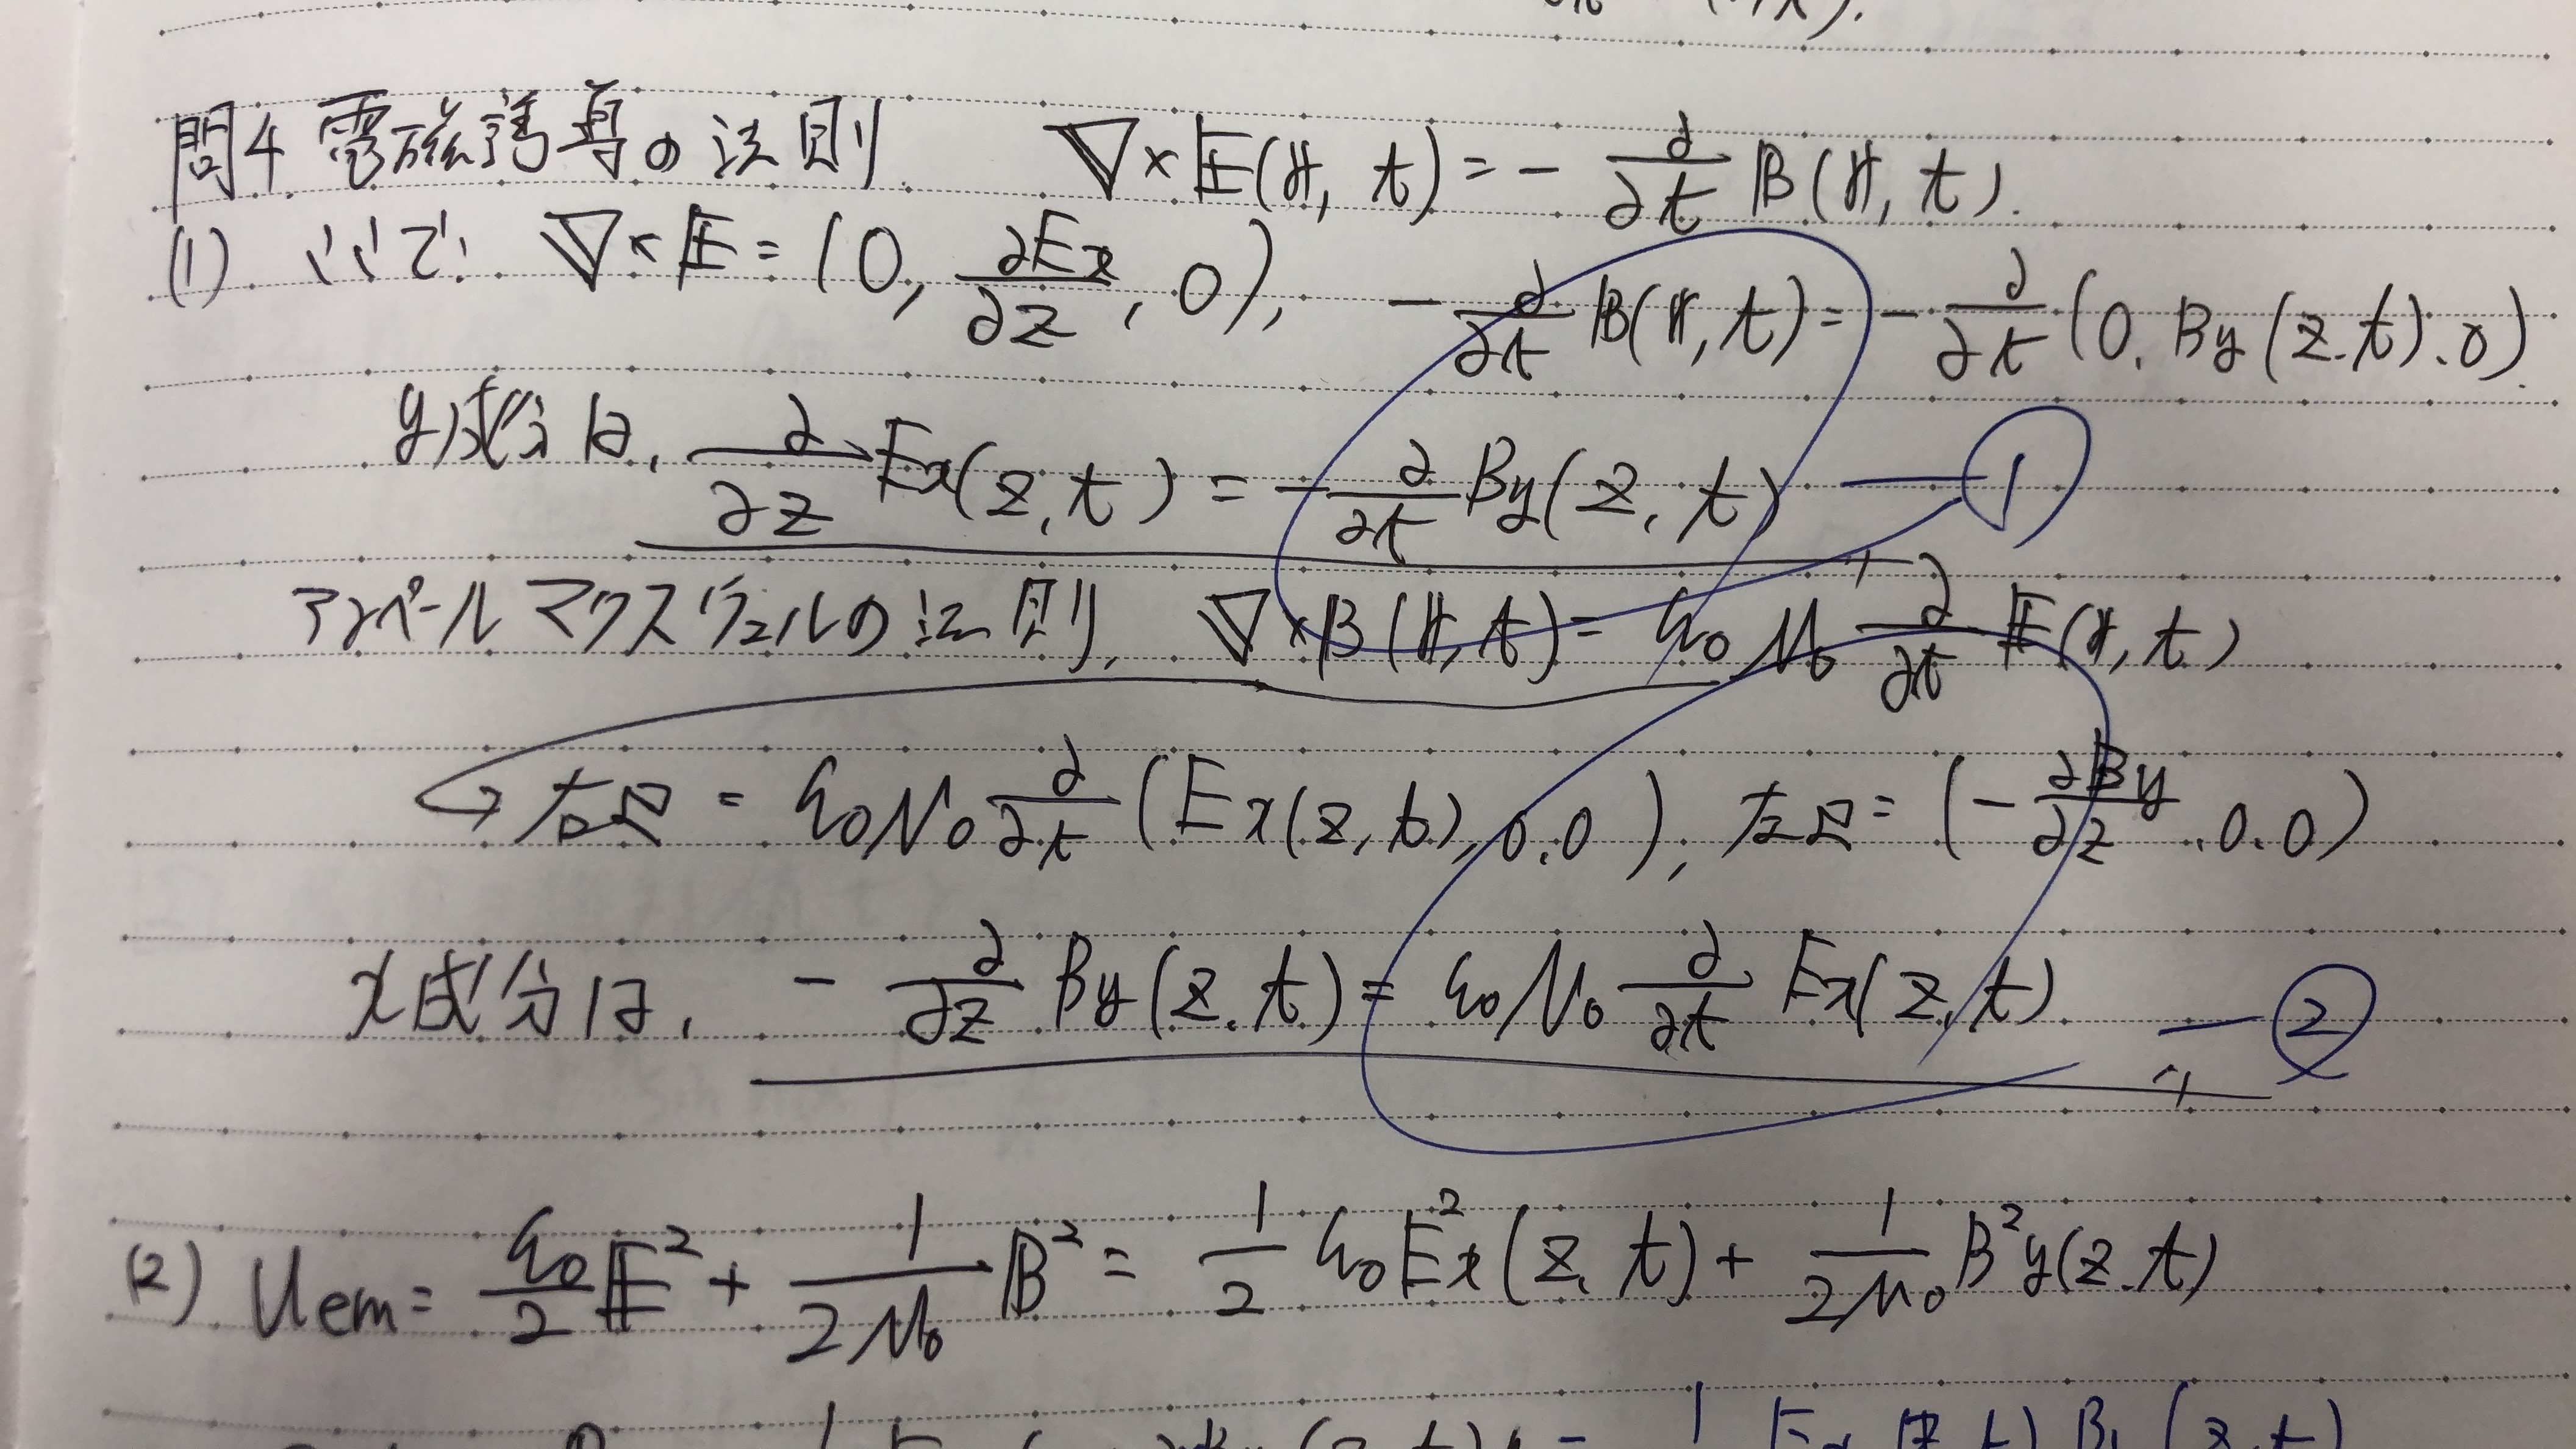 問4 電磁誘導の法則 ∇×E(r, t) = - ∂/∂t B(r, t).
(1) ここで、 ∇×E = (0, ∂Ex/∂z, 0), - ∂/∂t B(r, t) = - ∂/∂t (0, By(z, t), 0)
y成分は、 ∂/∂z Ex(z, t) = - ∂/∂t By(z, t) — ①
アンペールマクスヴェルの法則、 ∇×B(r, t) = ε0 μ0 ∂/∂t E(r, t)
右辺 = ε0 μ0 ∂/∂t (Ex(z, t), 0, 0), 左辺 = (- ∂By/∂z, 0, 0)
x成分は、 - ∂/∂z By(z, t) = ε0 μ0 ∂/∂t Ex(z, t) — ②
(2) Uem = ε0/2 E² + 1/2μ0 B² = 1/2 ε0 E²x(z, t) + 1/2μ0 B²y(z, t)